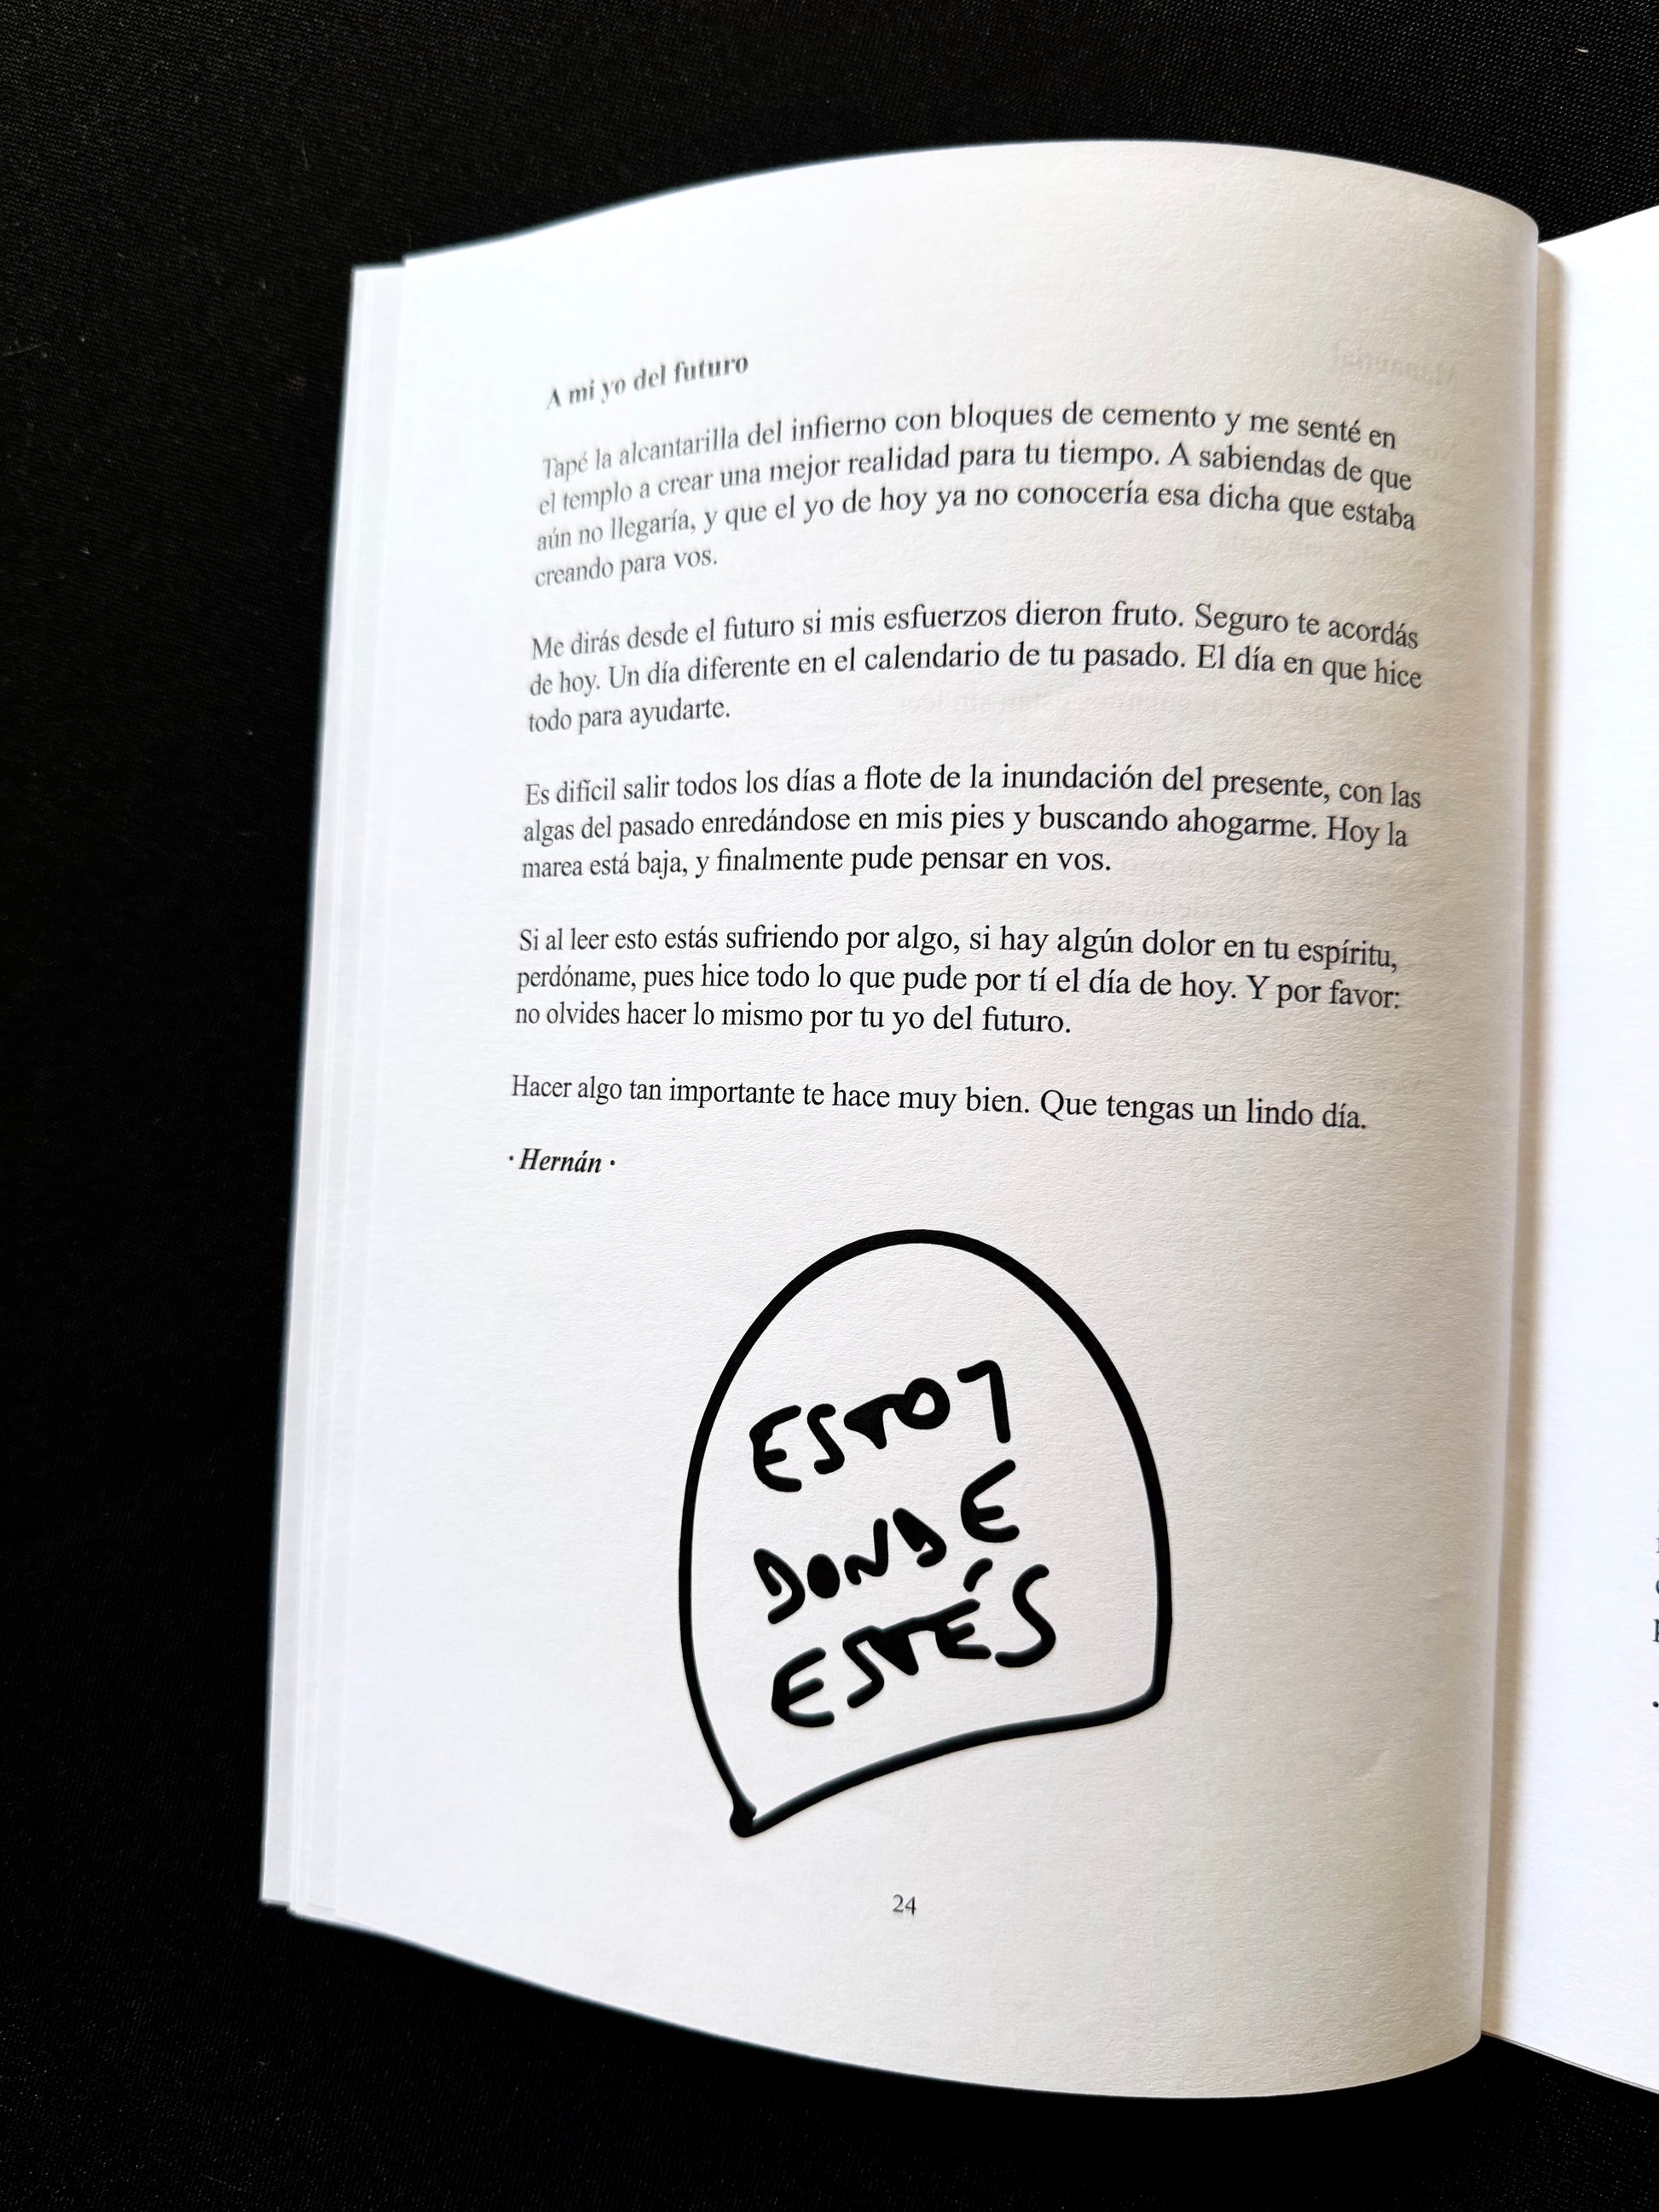 A mi yo del futuro
Tapé la alcantarilla del infierno con bloques de cemento y me senté en
el templo a crear una mejor realidad para tu tiempo. A sabiendas de que
aún no llegaría, y que el yo de hoy ya no conocería esa dicha que estaba
creando para vos.
Me dirás desde el futuro si mis esfuerzos dieron fruto. Seguro te acordás
de hoy. Un día diferente en el calendario de tu pasado. El día en que hice
todo para ayudarte.
Es difícil salir todos los días a flote de la inundación del presente, con las
algas del pasado enredándose en mis pies y buscando ahogarme. Hoy la
marea está baja, y finalmente pude pensar en vos.
Si al leer esto estás sufriendo por algo, si hay algún dolor en tu espíritu,
perdóname, pues hice todo lo que pude por tí el día de hoy. Y por favor:
no olvides hacer lo mismo por tu yo del futuro.
Hacer algo tan importante te hace muy bien. Que tengas un lindo día.
· Hernán ·
ESTOY
DONDE
ESTÉS
24